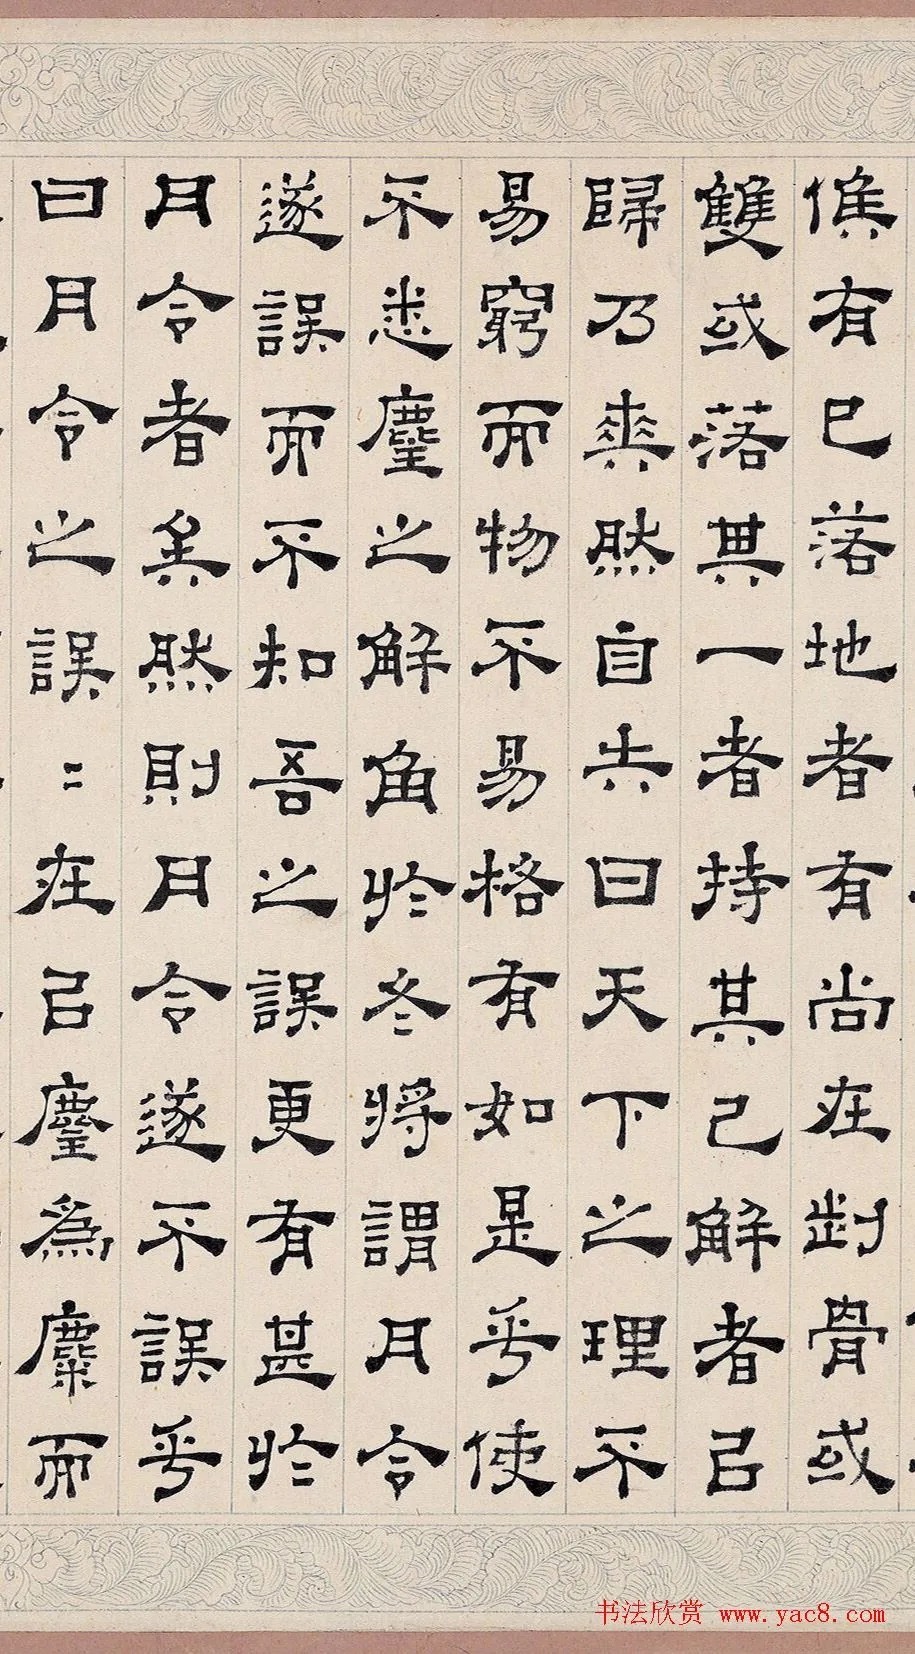 候有已落地者有尚在骨或
雙或落其一者持其已解者㠯
歸乃爽然自失曰天下之理不
易窮而物不易格有如是乎使
不悉麈之解角於冬將謂月令
遂誤而不知吾之誤更有甚於
月令者矣然則月令遂不誤乎
曰月令之誤〻在㠯麈為麋而
书法欣赏 www.yac8.com